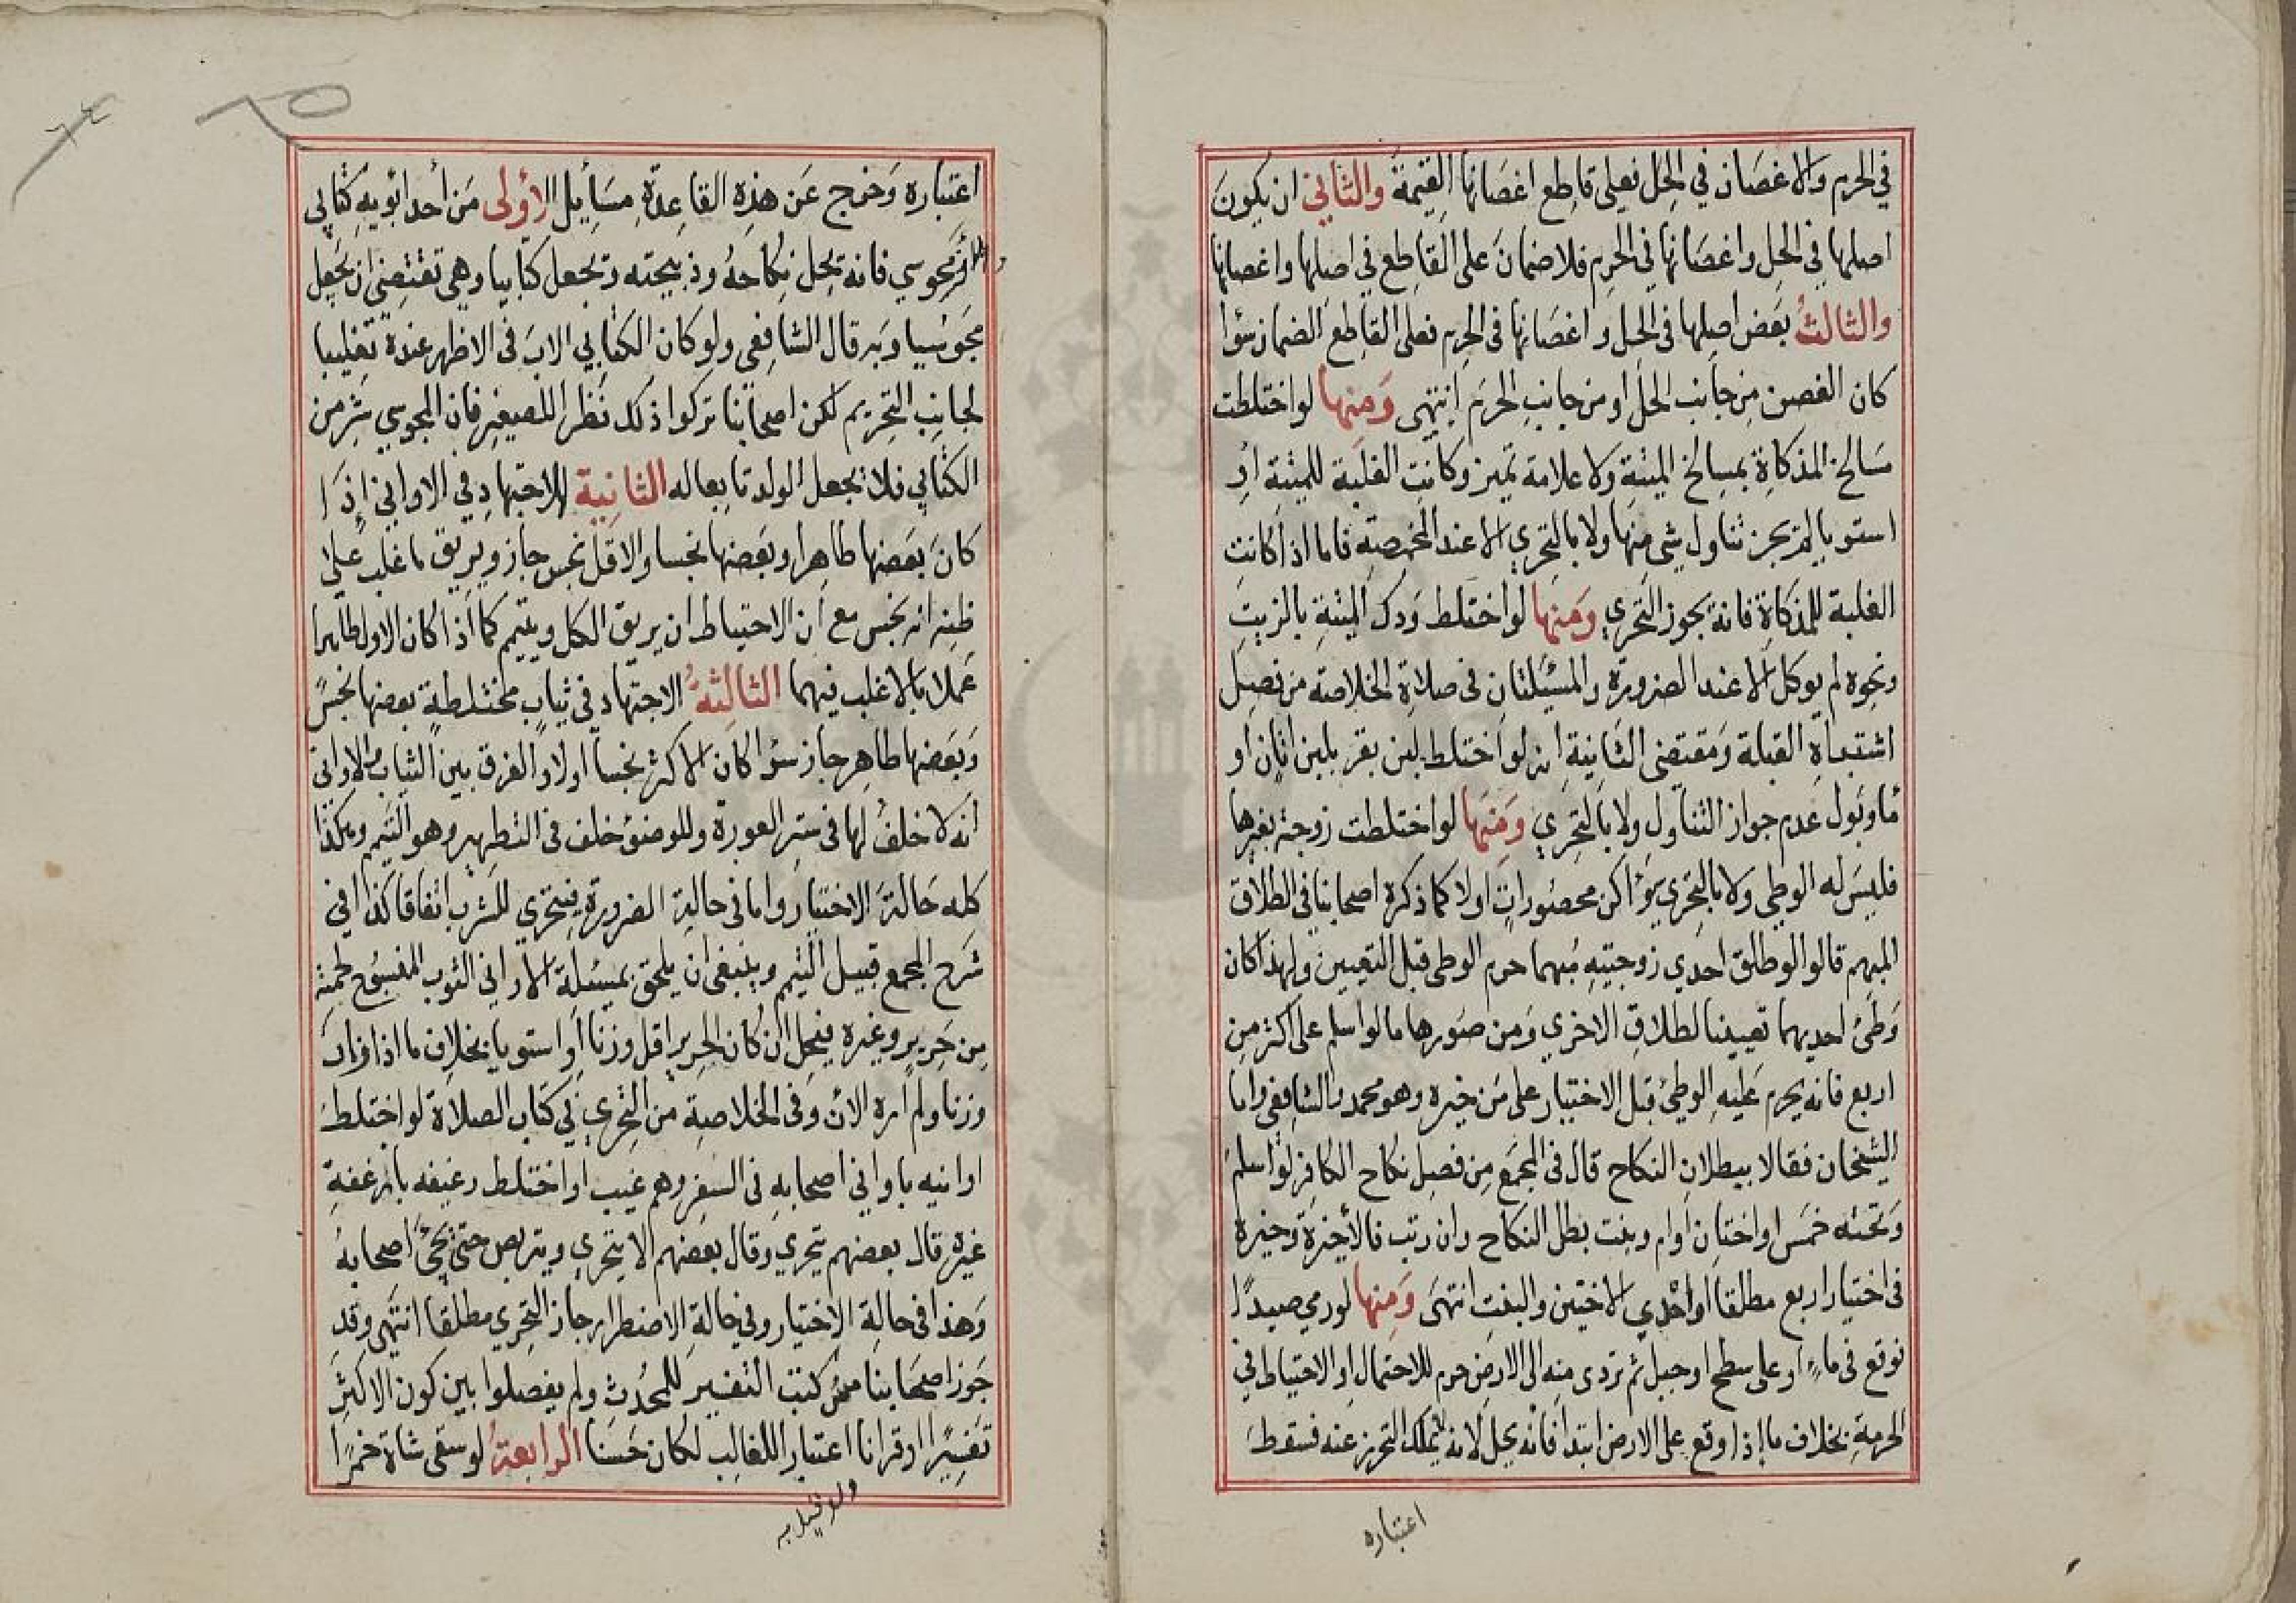 في الحرم والاغصان في الحل فعلى قاطع اغصانها القيمة والثاني ان يكون
اصلها في الحل واغصانها في الحرم فلا ضمان على القاطع في اصلها واغصانها
والثالث بعض اصلها في الحل واغصانها في الحرم فعلى القاطع الضمان سؤا
كان الغصن من جانب الحل او من جانب الحرم انتهى ومنها لو اختلطت
مسالخ المذكاة بمسالخ الميتة ولا علامة تميز وكانت الغلبة للميتة أو
استويا لم يجز تناول شي منها ولا بالتحري الا عند المخمصة فاما اذا كانت
الغلبة للمذكاة فانه يجوز التحري ومنها لو اختلط ودك الميتة بالزيت
ونحوه لم يوكل الا عند الضرورة والمسئلتان في صلاة الخلاصة من فصل
اشتباه القبلة ومقتضى الثانية انه لو اختلط لبن بقر بلبن اتان او
ما وبول عدم جواز التناول ولا بالتحري ومنها لو اختلطت زوجة بغيرها
فليس له الوطي ولا بالتحري سؤا كن محصورات او لا كما ذكره اصحابنا في الطلاق
المبهم قالوا لو طلق احدي زوجتيه مبهما حرم الوطي قبل التعيين ولهذا كان
وطئ احديهما تعيينا لطلاق الاخري ومن صورها ما لو اسلم على اكثر من
اربع فانه يحرم عليه الوطئ قبل الاختيار على من خيره وهو محمد والشافعي واما
الشيخان فقالا ببطلان النكاح قال في المجمع من فصل نكاح الكافر لو اسلم
وتحته خمس او اختان أو ام وبنت بطل النكاح وان رتب فالأخيرة وخيره
في اختيار اربع مطلقا او احدي الاختين والبنت انتهى ومنها لو رمي صيدًا
فوقع في ماء أو على سطح او جبل ثم تردى منه الى الارض حرم للاحتمال والاحتياط في
الحرمة بخلاف ما إذا وقع على الارض ابتدا فانه يحل لانه لا يملك التحرز عنه فسقط
اعتباره
اعتباره وخرج عن هذه القاعدة مسأيل الأولى من أحد أبويه كتابي
والاخر مجوسي فانه يحل نكاحه وذبيحته ويجعل كتابيا وهي تقتضي ان يجعل
مجوسيا وبه قال الشافعي ولو كان الكتابي الاب في الاظهر عنده تغليبا
لجانب التحريم لكن اصحابنا تركوا ذلك نظرا للصغير فان المجوسي شر من
الكتابي فلا يجعل الولد تابعا له الثانية الاجتهاد في الاواني إذا
كان بعضها طاهرا وبعضها نجسا والاقل نجس جاز ويريق ما غلب على
ظنه انه نجس مع ان الاحتياط ان يريق الكل ويتيمم كما اذا كان الاول طاهرا
عملا بالاغلب فيهما الثالثة الاجتهاد في ثياب مختلطة بعضها نجس
وبعضها طاهر جاز سؤا كان الاكثر نجسا او لا والفرق بين الثياب والاواني
أنه لا خلف لها في ستر العورة وللوضؤ خلف في التطهير وهو التيمم وهكذا
كله حالة الاختيار واما في حالة الضرورة فيتحري للشرب اتفاقا كذا في
شرح المجمع قبيل التيمم وينبغي ان يلحق بمسئلة الاواني الثوب المنسوج لحمته
من حرير وغيره فيحل ان كان الحرير اقل وزنا أو استويا بخلاف ما اذا زاد
وزنا ولم اره الان وفي الخلاصة من التحري في كتاب الصلاة لو اختلط
اوانيه باواني اصحابه في السفر وهم غيب او اختلط رغيفه بارغفة
غيره قال بعضهم يتحري وقال بعضهم لا يتحري ويتربص حتى يجئ اصحابه
وهذا في حالة الاختيار وفي حالة الاضطرار جاز التحري مطلقا انتهى وقد
جوز اصحابنا مس كتب التفسير للمحدث ولم يفصلوا بين كون الاكثر
تفسيرًا او قرانا اعتبارا للغالب لكان حسنا الرابعة لو سقى شاة خمرًا
ولو قيل به